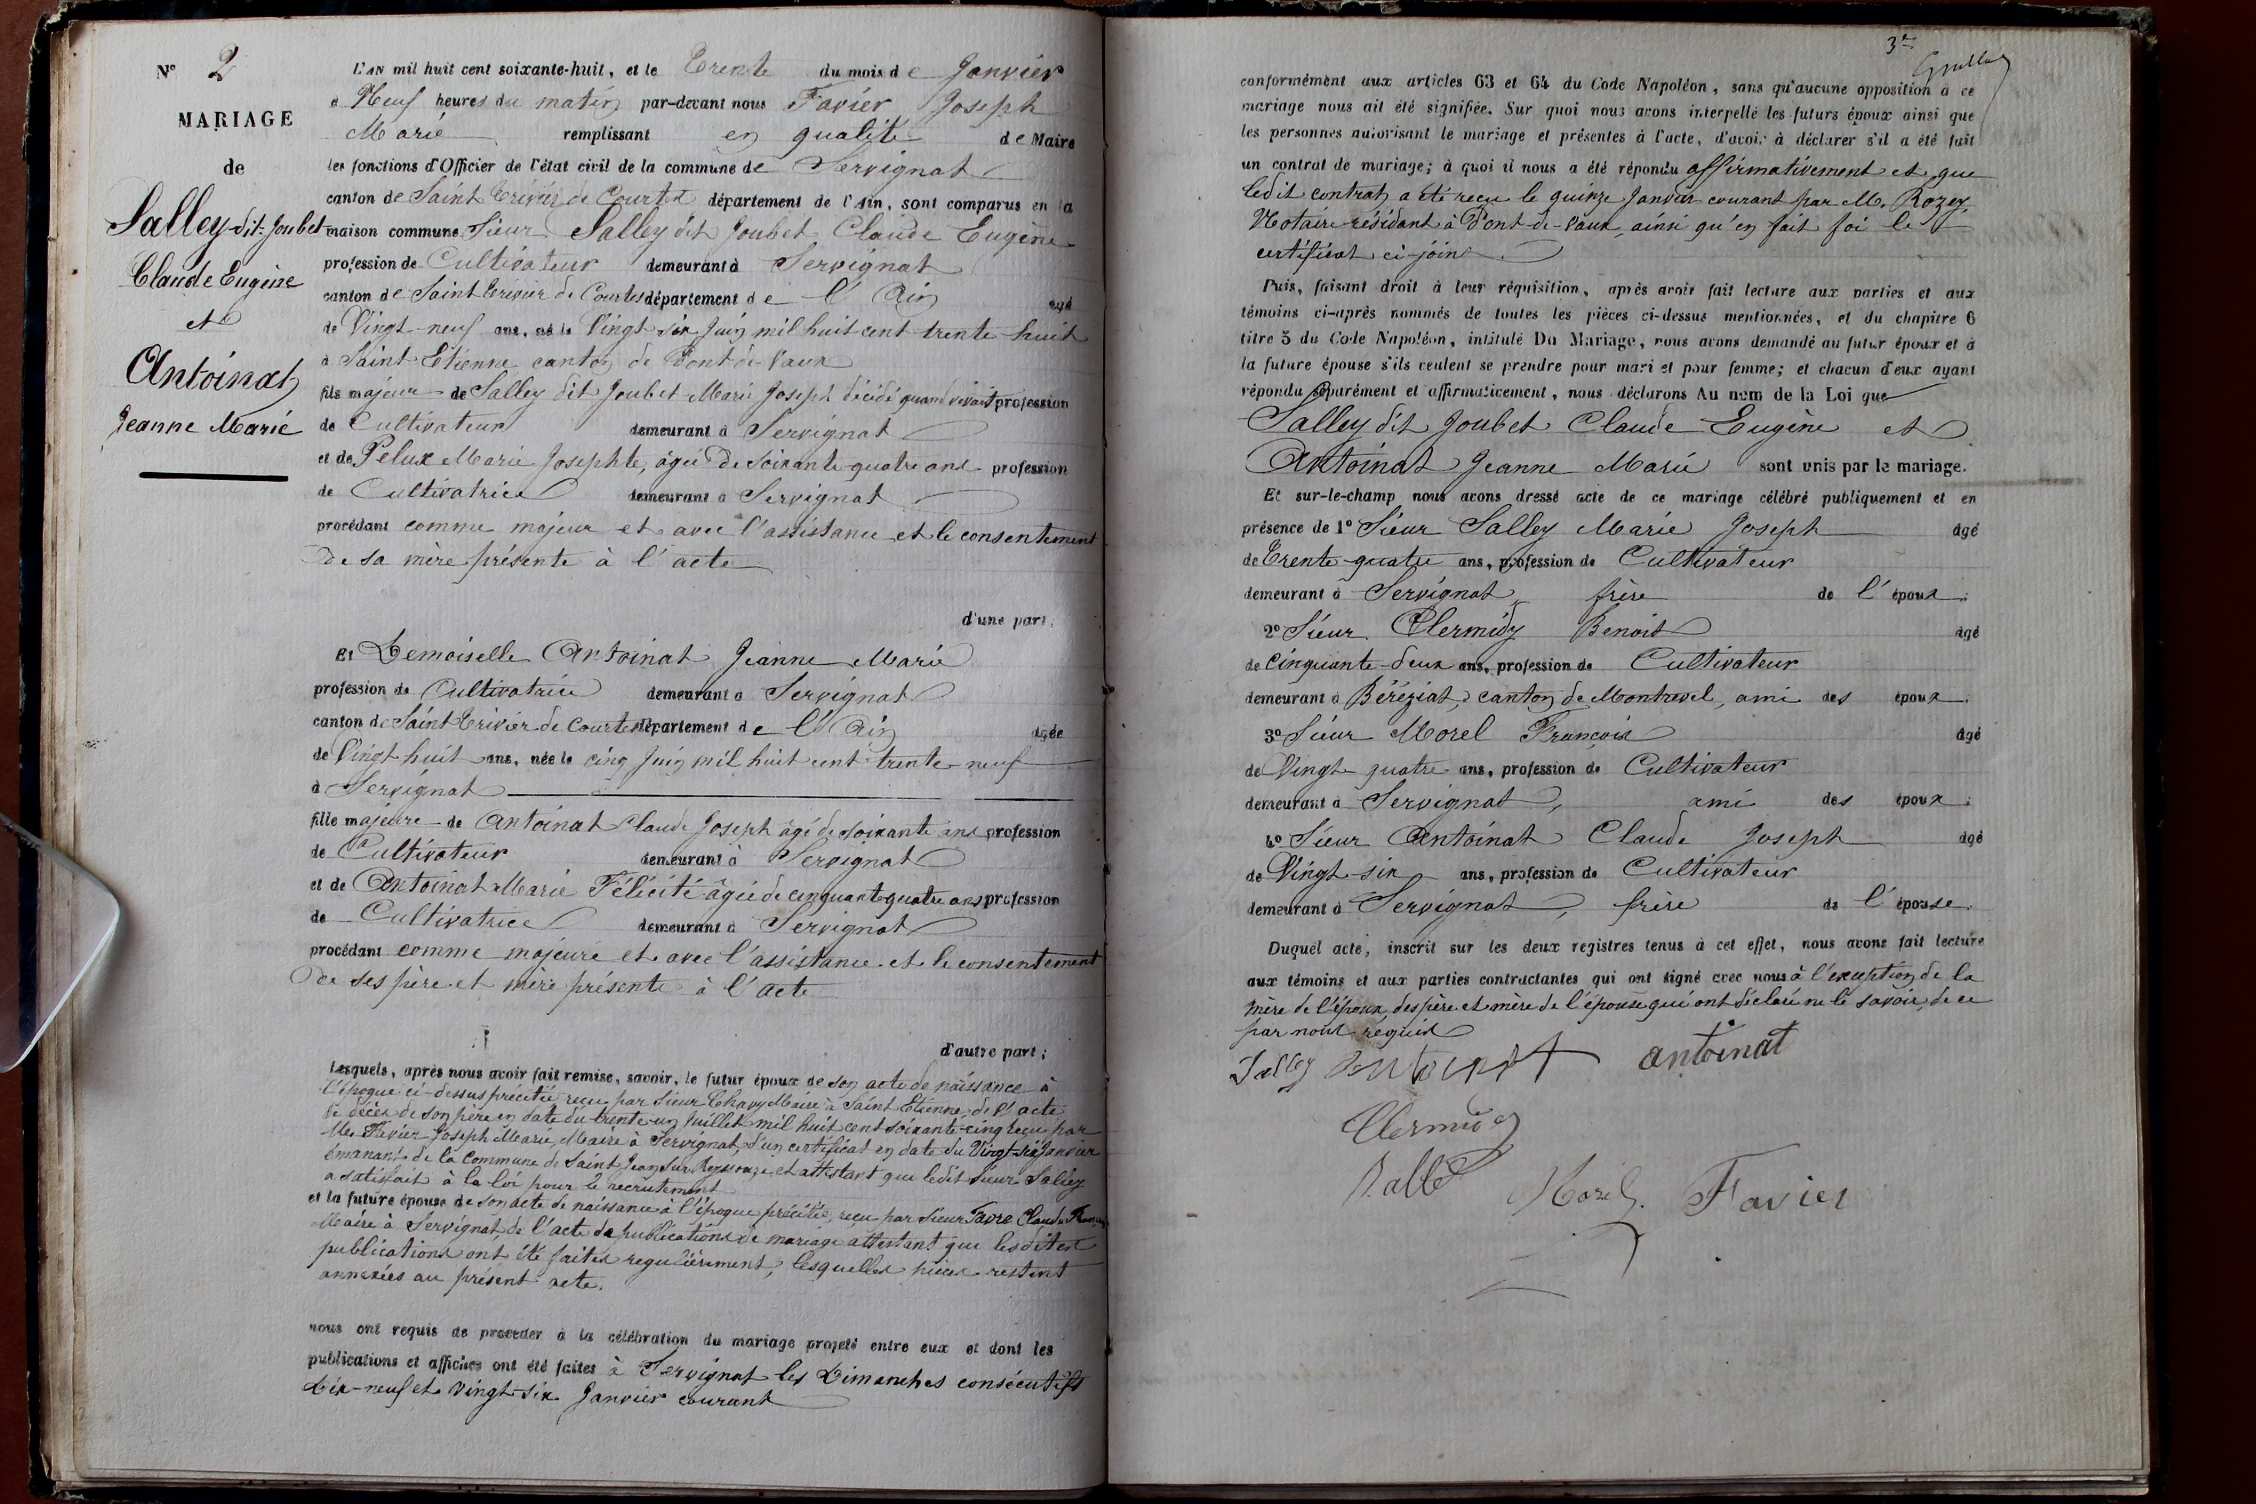 N° 2
MARIAGE
de
Salley dit Joubet
Claude Eugène
et
Antoinat
Jeanne Marie
L'AN mil huit cent soixante-huit, et le Trente du mois de Janvier
à Neuf heures du matin par-devant nous Favier Joseph
Marie remplissant en qualité de Maire
les fonctions d'Officier de l'état civil de la commune de Servignat
canton de Saint Trivier de Courtes département de l'Ain, sont comparus en la
maison commune Sieur Salley dit Joubet Claude Eugène
profession de Cultivateur demeurant à Servignat
canton de Saint Trivier de Courtes département de l'Ain âgé
de Vingt-neuf ans, né le Vingt six Juin mil huit cent trente-huit
à Saint Etienne canton de Pont-de-Vaux
fils majeur de Salley dit Joubet Marie Joseph décédé quand vivait profession
de Cultivateur demeurant à Servignat
et de Pelux Marie Josephte, âgée de soixante-quatre ans profession
de Cultivatrice demeurant à Servignat
procédant comme majeur et avec l'assistance et le consentement
de sa mère présente à l'acte
d'une part;
Et Demoiselle Antoinat Jeanne Marie
profession de Cultivatrice demeurant à Servignat
canton de Saint Trivier de Courtes département de l'Ain âgée
de Vingt huit ans, née le cinq Juin mil huit cent trente-neuf
à Servignat
fille majeure de Antoinat Claude Joseph âgé de soixante ans profession
de Cultivateur demeurant à Servignat
et de Antoinat Marie Félicité âgée de cinquante quatre ans profession
de Cultivatrice demeurant à Servignat
procédant comme majeure et avec l'assistance et le consentement
de ses père et mère présente à l'acte
d'autre part;
Lesquels, après nous avoir fait remise, savoir, le futur époux de son acte de naissance à
l'époque ci-dessus précitée reçu par Sieur Chavy Maire à Saint Etienne, de l'acte
de décès de son père en date du trente un Juillet mil huit cent soixante-cinq reçu par
Me Favier Joseph Marie, Maire à Servignat, d'un certificat en date du Vingt-six Janvier
émanant de la Commune de Saint Jean sur Reyssouze, et attestant que ledit Sieur Salley
a satisfait à la loi pour le recrutement
et la future épouse de son acte de naissance à l'époque précitée, reçu par Sieur Favre Claude
Maire à Servignat, de l'acte de publications de mariage attestant que lesdites
publications ont été faites regulièrement, lesquelles pièces restent
annexées au présent acte.
nous ont requis de procéder à la célébration du mariage projeté entre eux et dont les
publications et affiches ont été faites à Servignat les Dimanches consécutifs
Dix-neuf et Vingt-six Janvier courant
3
conformément aux articles 63 et 64 du Code Napoléon, sans qu'aucune opposition à ce
mariage nous ait été signifiée. Sur quoi nous avons interpellé les futurs époux ainsi que
les personnes autorisant le mariage et présentes à l'acte, d'avoir à déclarer s'il a été fait
un contrat de mariage; à quoi il nous a été répondu affirmativement et que
ledit contrat a été reçu le quinze Janvier courant par M. Rozey,
Notaire résidant à Pont-de-Vaux, ainsi qu'en fait foi le
certificat ci-joint.
Puis, faisant droit à leur réquisition, après avoir fait lecture aux parties et aux
témoins ci-après nommés de toutes les pièces ci-dessus mentionnées, et du chapitre 6
titre 5 du Code Napoléon, intitulé Du Mariage, nous avons demandé au futur époux et à
la future épouse s'ils veulent se prendre pour mari et pour femme; et chacun d'eux ayant
répondu séparément et affirmativement, nous déclarons Au nom de la Loi que
Salley dit Joubet Claude Eugène et
Antoinat Jeanne Marie sont unis par le mariage.
Et sur-le-champ nous avons dressé acte de ce mariage célébré publiquement et en
présence de 1° Sieur Salley Marie Joseph âgé
de Trente-quatre ans, profession de Cultivateur
demeurant à Servignat, frère de l'époux;
2° Sieur Clermidy Benoit âgé
de cinquante-deux ans, profession de Cultivateur
demeurant à Béréziat, canton de Montrevel, ami des époux;
3° Sieur Morel François âgé
de Vingt quatre ans, profession de Cultivateur
demeurant à Servignat, ami des époux;
4° Sieur Antoinat Claude Joseph âgé
de Vingt-six ans, profession de Cultivateur
demeurant à Servignat, frère de l'épouse.
Duquel acte, inscrit sur les deux registres tenus à cet effet, nous avons fait lecture
aux témoins et aux parties contractantes qui ont signé avec nous à l'exception de la
mère de l'époux, des père et mère de l'épouse qui ont déclaré ne le savoir, de ce
par nous requis
Salley antoinat antoinat
Clermidy
Morel. Favier